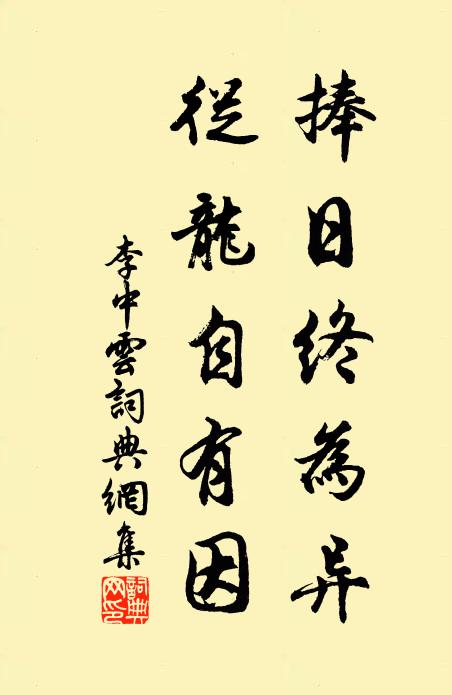 捧日終為异
從龍自有因
李中雲詞典網集
詞典网印